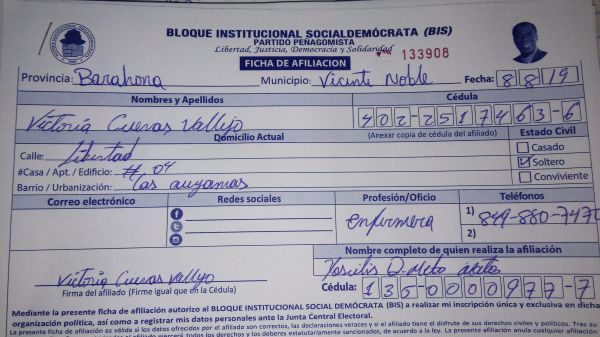 BLOQUE INSTITUCIONAL SOCIALDEMÓCRATA (BIS)
PARTIDO PEÑAGOMISTA
Libertad, Justicia, Democracia y Solidaridad
133908
FICHA DE AFILIACION
Provincia: Barahona Municipio: Vicente Noble Fecha: 8 8 19
Nombres y Apellidos Cédula
Victoria Cuevas Vallejo 402-2517463-6
Domicilio Actual (Anexar copia de cédula del afiliado) Estado Civil
Calle: Libertad Casado
#Casa / Apt. / Edificio: # 04 Soltero
Barrio / Urbanización: Las auyamas Conviviente
Correo electrónico Redes sociales Profesión/Oficio Teléfonos
enfermera 1) 849-880-7470
2)
Nombre completo de quien realiza la afiliación
Victoria Cuevas Vallejo
Firma del afiliado (Firme igual que en la Cédula) Cédula: 135-0000977-7
Mediante la presente ficha de afiliación autorizo al BLOQUE INSTITUCIONAL SOCIAL DEMÓCRATA (BIS) a realizar mi inscripción única y exclusiva en dicha
organización política, así como a registrar mis datos personales ante la Junta Central Electoral.
La presente ficha de afiliación es válida si los datos ofrecidos por el afiliado son correctos, las declaraciones veraces y si el afiliado tiene el disfrute de sus derechos civiles y políticos. Tras su